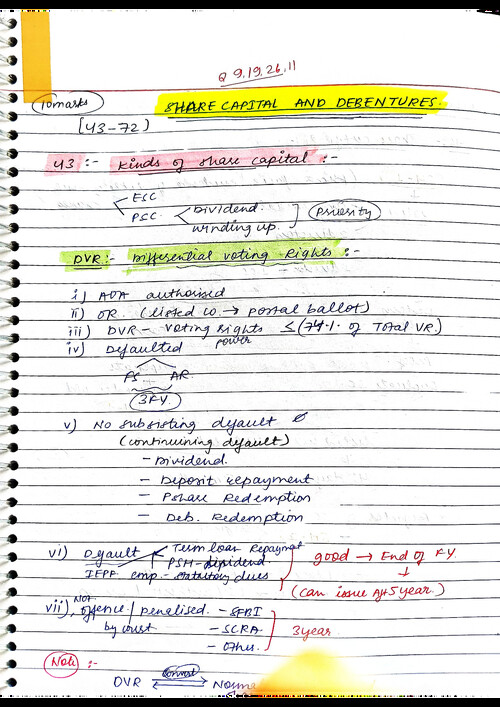 Q 9,19,26,11
10marks
SHARE CAPITAL AND DEBENTURES.
[43-72)
43 :- Kinds of share capital :-
ESC
PSC Dividend. winding up. Priority
DVR:- Differential voting Rights :-
i) AOA authorised
ii) OR. (listed co. → postal ballot)
iii) DVR - voting rights ≤ (74% of Total VR.)
power
iv) Defaulted
FS AR
3FY.
v) No subsisting default
(continuining default)
- Dividend.
- Deposit repayment
- Pshare Redemption
- Deb. Redemption
vi) Default Term loan Repaymet
PSH - dividend good → End of FY
IEPF emp - statutory dues ↓
(can issue Aft 5 year.)
vii) NOT offence / penalised. - SEBI
by court - SCRA 3 year
- Other.
Note :-
convert
DVR Norma